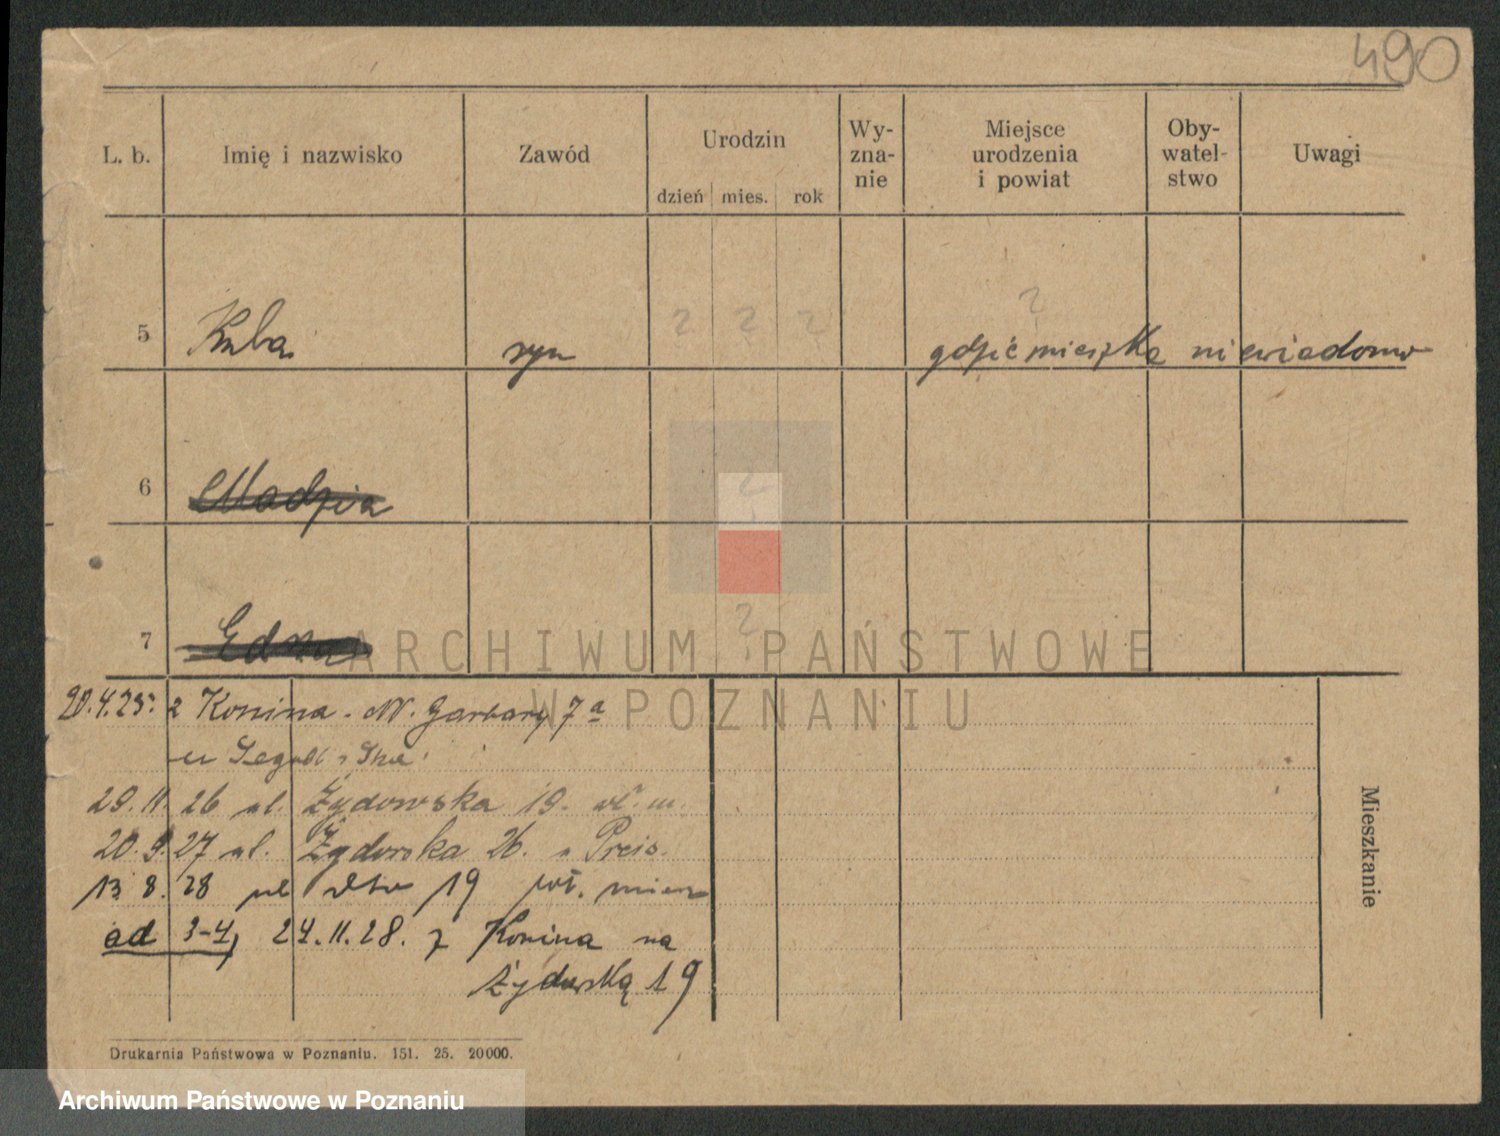 490
L. b. Imię i nazwisko Zawód Urodzin Wy-zna-nie Miejsce urodzenia i powiat Oby-watel-stwo Uwagi
dzień mies. rok
? ? ? ?
5 Kuba syn gdzie mieszka niewiadomo
?
6 Madzia
?
7 Edzia
ARCHIWUM PAŃSTWOWE
W POZNANIU
20.4.25. z Konina - W. Garbary 7a
u
29.11.26 ul. Żydowska 19. wł. m.
20.9.27 ul. Żydowska 26. u Preis.
13 8. 28 ul 19 wł. miesz
ad 3-4, 24.11.28. z Konina na
Żydowską 19
Mieszkanie
Drukarnia Państwowa w Poznaniu. 151. 25. 20000.
Archiwum Państwowe w Poznaniu